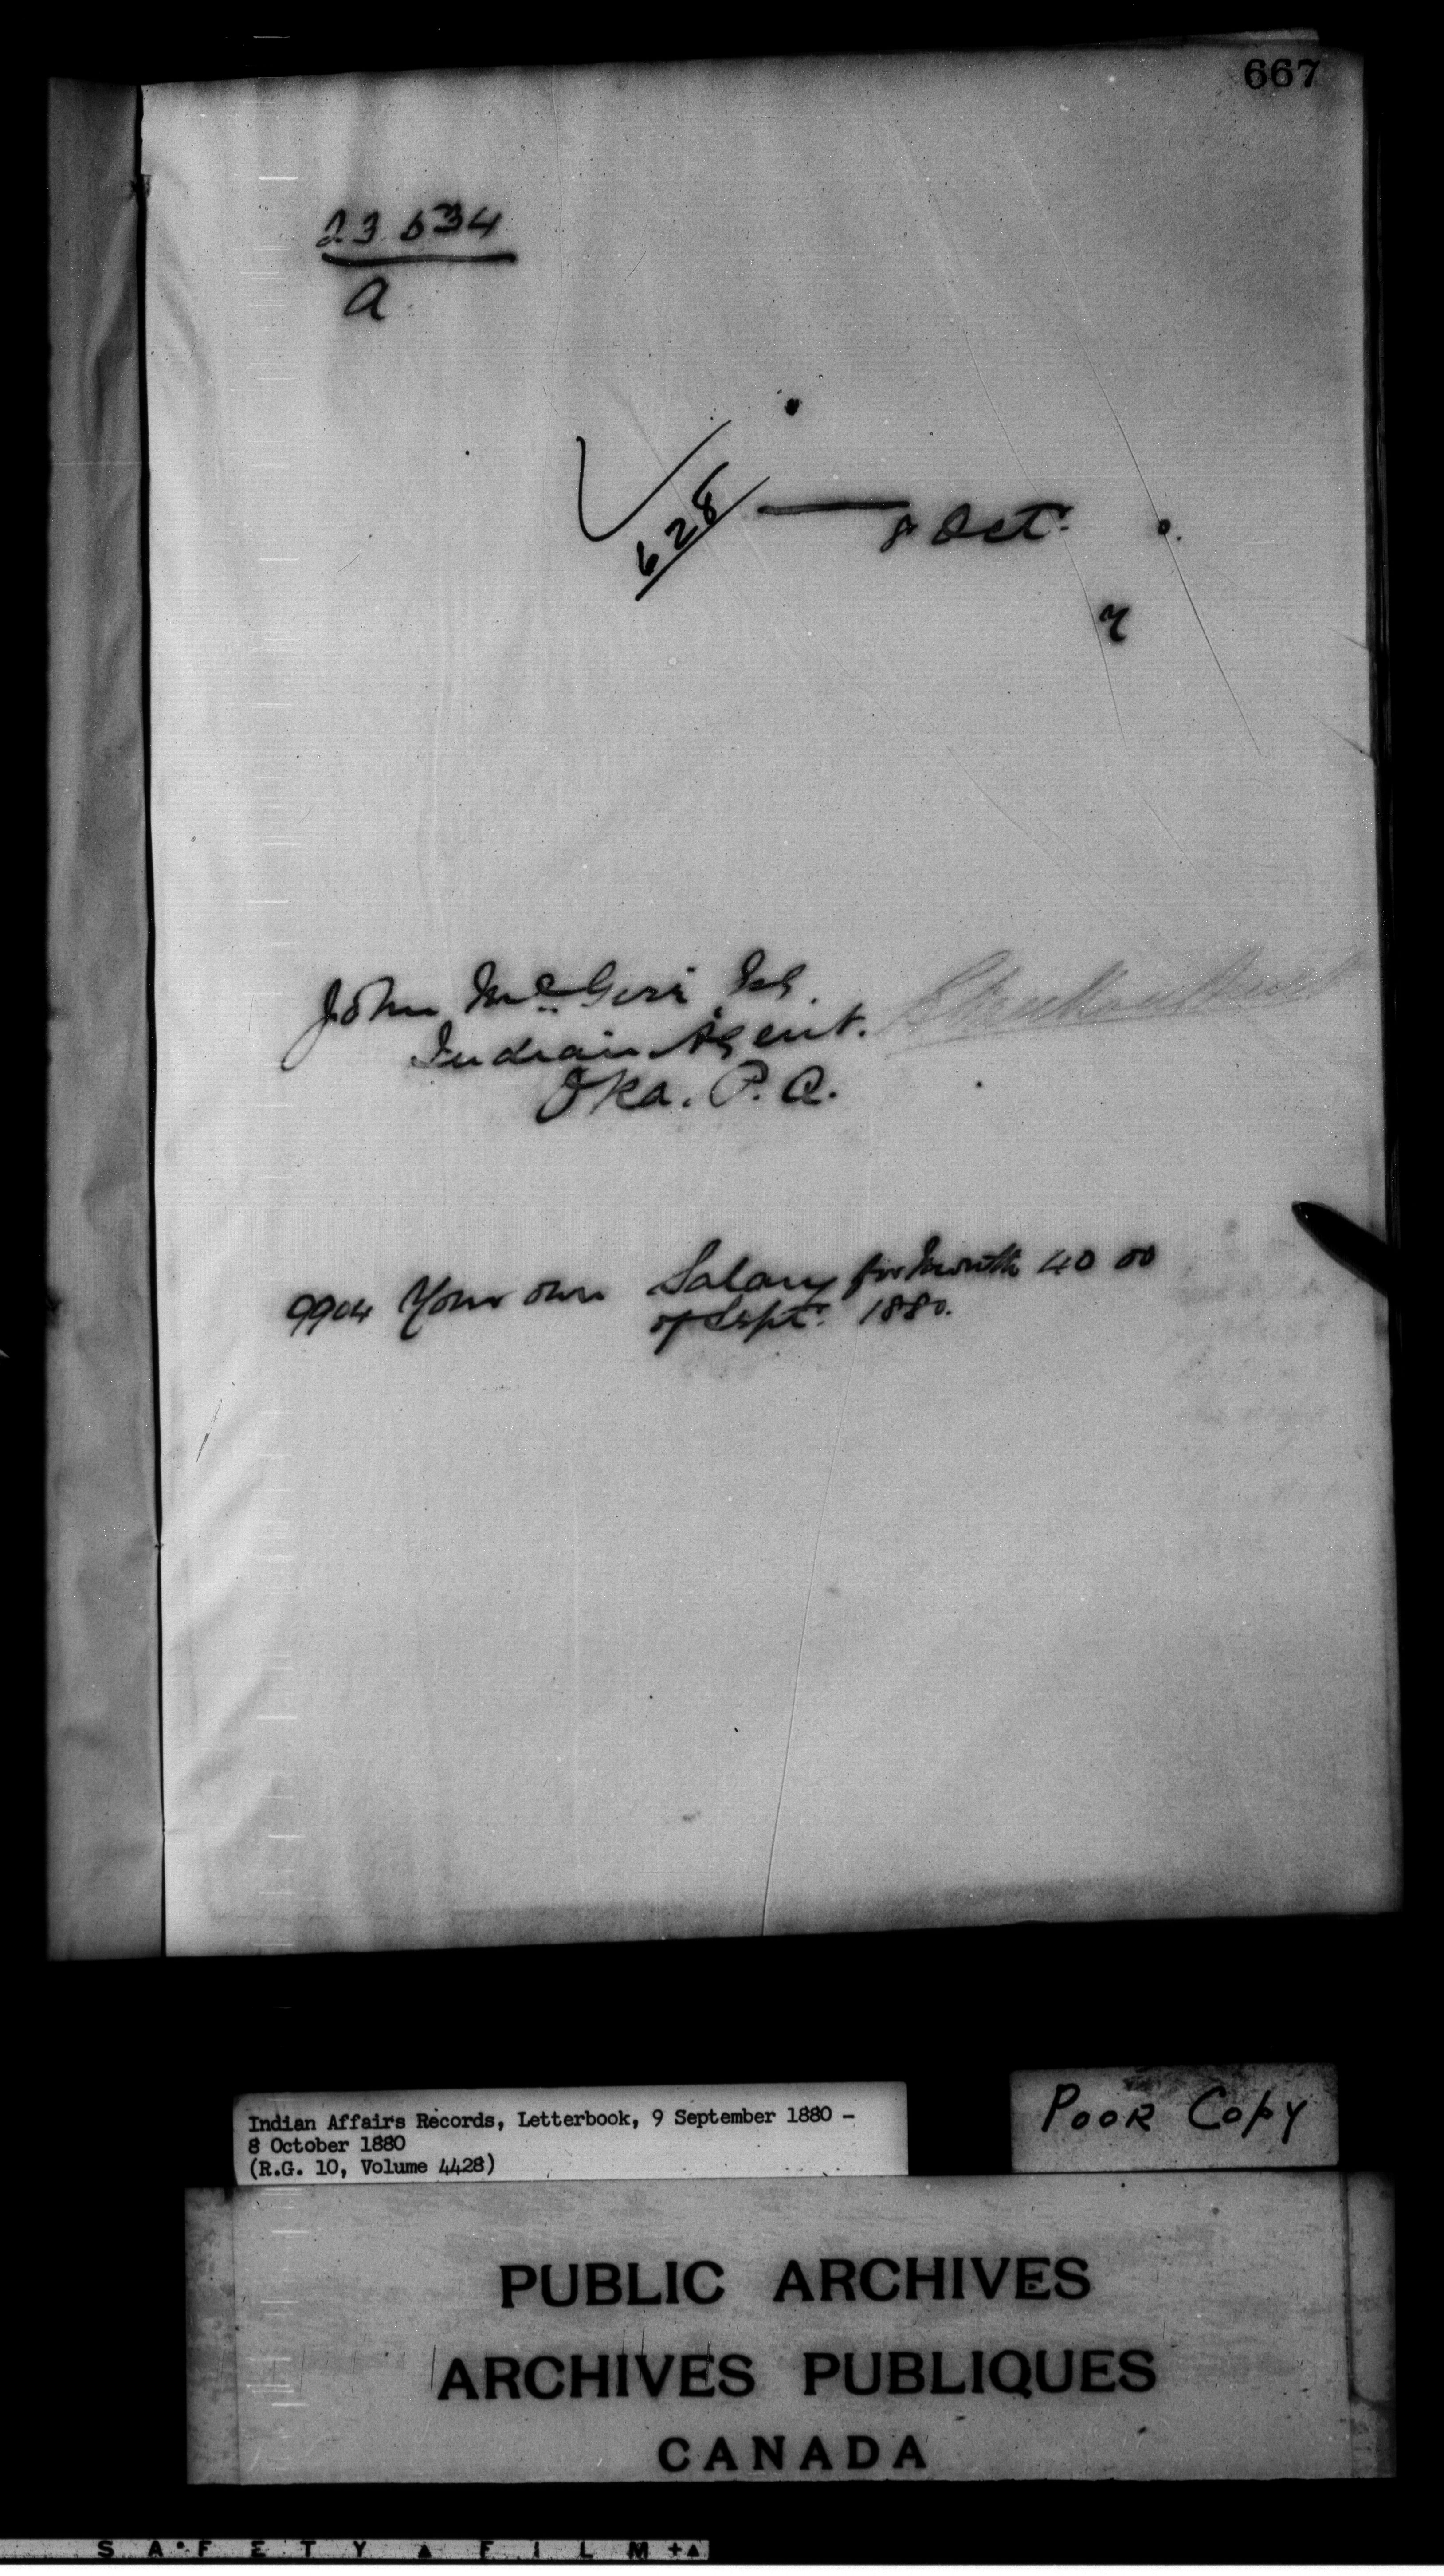 667
23 634
a
628 — 8 Oct.
2
John McGirr Esq.
Indian Agent.
Oka. P.Q.
9904 Your own Salary for month 40 00
of Sept. 1880.
Indian Affairs Records, Letterbook, 9 September 1880 -
8 October 1880
(R.G. 10, Volume 4428)
POOR COPY
PUBLIC ARCHIVES
ARCHIVES PUBLIQUES
CANADA
SAFETY ▲ FILM +▲